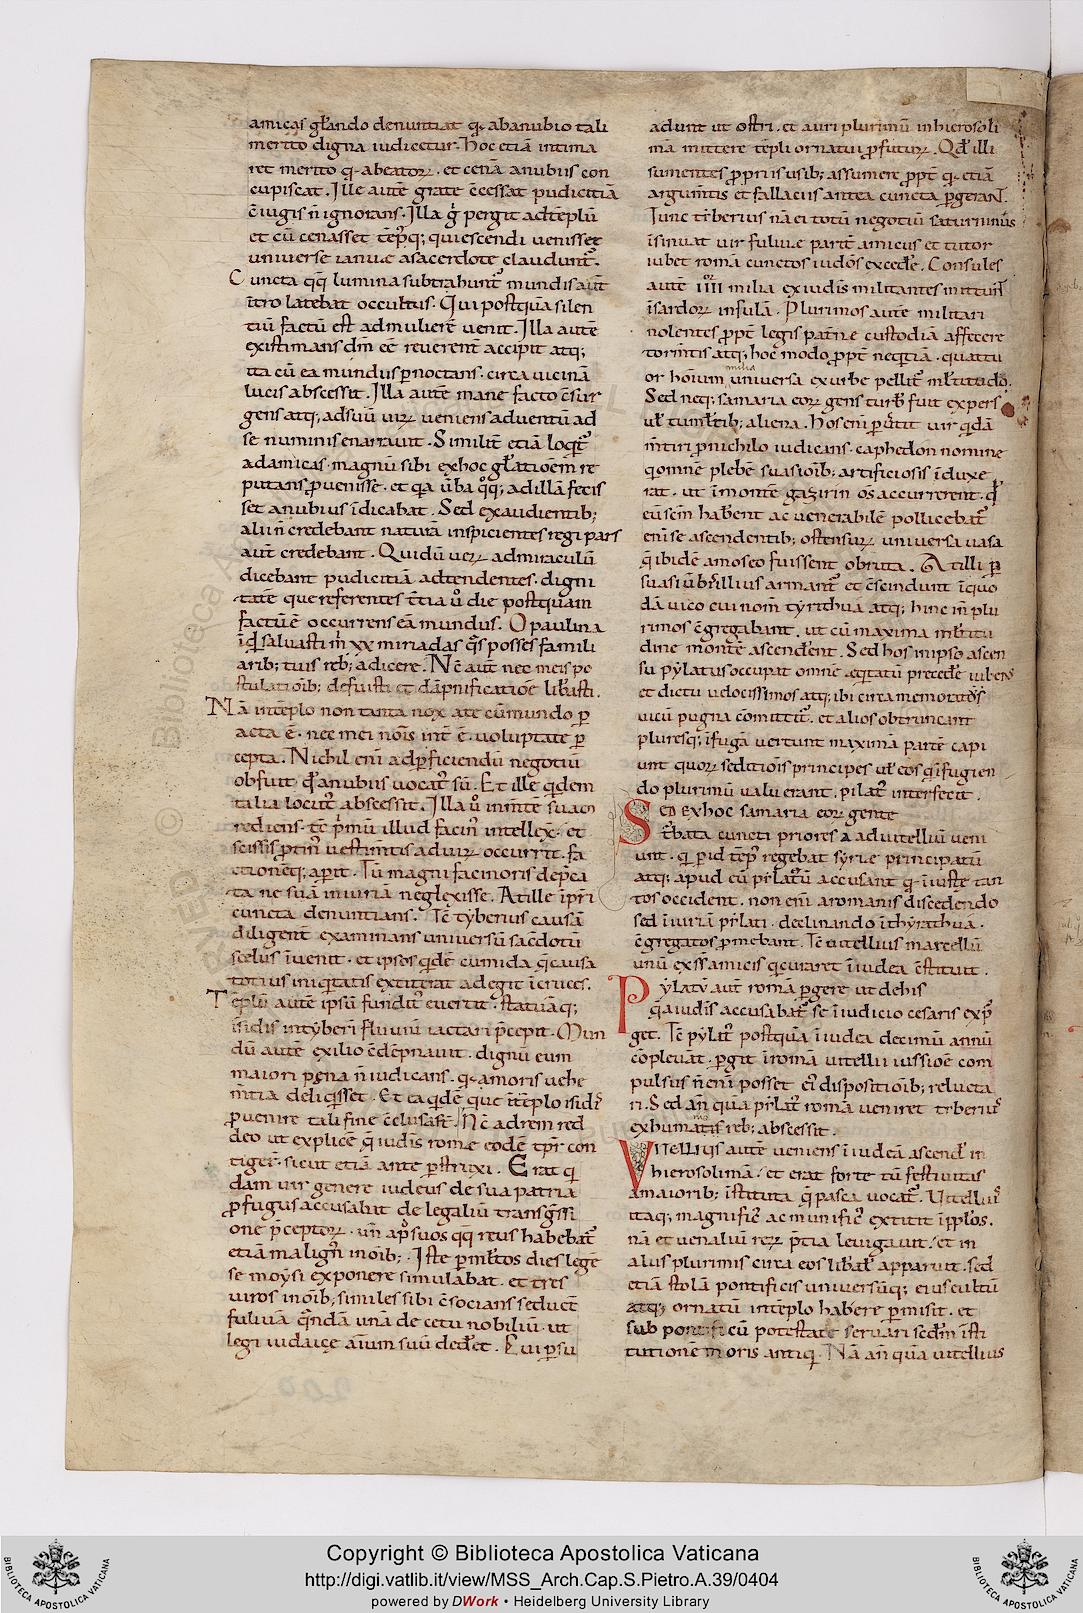 amicas gl̄ando denuntiat q̄ abanubio tali
merito digna iudicetur. Hoc etiā intima
ret merito q̄ abeatoꝝ. et cenā anubiis con
cupiscat. Ille autē grate c̄cessat pudicitiā
c̄iugis n̄ ignorans. Illa ḡ pergit adtēplū
et cū cenasset tēp̄q; quiescendi uenisset
universe ianue asacerdote claudunt᷑.
Cuncta qq̄ lumina subtrahunt᷑ mundis aūt
īt̄ro latebat occultus. Qui postquā silen
tiū factū est admulierē uenit. Illa autē
existimans dm̄ eē reuerent̄ accipit atq;
ita cū ea mundus p̄noctans. circa uicinā
lucis abscessit. Illa autē mane facto c̄sur
gens atq; adsuū uiꝝ ueniens aduentū ad
se numinis enarrauit. Similit̄ etiā loq̄t᷑
adamicas. magnū sibi exhoc gl̄atioēm re
putans ꝓuenisse. et q̄a ūba q̄q; adillā fecis
set anubius īdicabat. Sed exaudientib;
alii n̄ credebant naturā inspicientes regi pars
aūt credebant. Quidū ueꝝ admiraculū
dicebant pudicitiā adtendentes. digni
tatē que referentes t̄tia u̇ die postquam
factū ē occurrens eā mundus. O paulina
īq̄d saluasti m̄ xx miriadas q̄s posses famili
arib; tuis reb; adicere. Nc̄ aūt nec meis po
stulatiōib; defuisti et dāpnificatiōe lib̄asti.
Nā intēplo non tanta nox ate cūmundo ꝑ
acta ē. nec mei noīs int̄ ē. uoluptate ꝑ
cepta. Nichil enī adꝑficiendū negotiū
obfuit qd̄ anubius uocat᷑ sū. Et ille q̄dem
talia locut᷑ abscessit. Illa u̇ inm̄te sua
rediens. tc̄ p̄mū illud facin᷑ intellex. et
scissis ꝓtin᷑ uestim̄tis aduiꝝ occurrit. fa
ctioneq; ap̄it. Tū magni facinoris dep̄ca
ta ne suā iniuriā neglexisse. At ille īp̄ri
cuncta denuntians. Tc̄ tyberius causā
diligent̄ examinans uniuersū sac̄dotū
scelus īuenit. et ipsos q̄dē cumida q̄causa
totius iniq̄tatis extiterat adegit īcruces.
Tēplū autē ipsū fundit᷑ euertit. statuāq;
isidis intyberī fluuiū iactari p̄cepit. Mun
dū autē exilio c̄dēpnauit. dignū eum
maiori pęna n̄ iudicans. q̄ amoris uehe
m̄tia deliq̄sset. Et ea q̄dē que ītēplo isid᷑
ꝓuenire tali fine c̄clusāst̄. Nc̄ adrem red
deo ut explicē q̄ iudīs romę eodē tp̄r con
tiger̄. sicut etiā ante p̄struxi. Erat q̄
dam uir genere iudeus de sua patria
ꝓfugus accusabat de legaliū transgr̄ssi
one p̄ceptoꝝ. un̄ ap̄ suos qq̄ reus habebat᷑
etiā malign᷑ inoīb;. Iste ꝑ m̄ltos dies legē
se moysi exponere simulabat. et tres
uiros inoīb; similes sibi c̄socians seducit̄
fuluiā q̄ndā unā de cetu nobiliū. ut
legi iudaicę aīum suū ded̄et. Cui ꝑsu
adunt ut ostri. et auri plurimū inhierosoli
ma mittere tēpli ornatui ꝓfutuꝝ. Qd̄ illi
sumentes ꝓpriis usib; assumere ꝓpt̄ q̄ etiā
argum̄tis et fallaciis antea cuncta ꝑgerant᷑.
Tunc tyberius nā ei totū negotiū saturninus
īsinuat uir fuluię part̄ amicus et tutor
iubet romā cunctos iudōs exced̄e. Consules
autē iiii milia ex iudīs militantes mittun᷑
īsardoꝝ insulā. Plurimos autē militari
nolentes ꝓpt̄ legis patrię custodiā affecere
torm̄tis atq; hoc modo ꝓpt̄ neq̄tiā. quattu
milia
or hōium uniuersa ex urbe pellit᷑ ml̄titudo.
Sed neq; samaria eoꝝ gens turb̄ fuit expers
ul᷑ tumltib; aliena. Hos enī ꝑu̇tit uir q̄dā
m̄tiri ꝓ nichilo iudicans. caphedon nomine
q̄omnē plebē suasiōib; artificiosis īduxe
rat. ut īmontē gazirin ōs accurrerent. qd̄
eūsem haberent ac uenerabilē pollicebat᷑
enīse ascendentib; ostensuꝝ uniuersa uasa
q̄ ibidē amoseo fuissent obruta. At illi ꝑ
suasi ūb̄ illius armant᷑ et c̄scindunt īquo
dā uico cui nom̄ tyrathuā atq; hinc īn plu
rimos c̄gregabant. ut cū maxima ml̄titu
dine montē ascend̄ent. Sed hos inipso ascen
su pylatus occupat omnē eq̄tatū preced̄e iubens
et dictu uelocissimos atq; ibi circa memoratos
uicū pugna c̄omittit᷑. et alios obtruncant
pluresq; īfugā uertunt maximā partē capi
unt quoꝝ seditiōis principes ul᷑ eos q̄ īfugien
do plurimū ualuerant. pilat᷑ interfecit.
SED EXhoc samaria eoꝝ gente
t̄bata cuncti priores a aduitelliū ueni
unt. q̄ ꝑ id tēp᷑ regebat syrię principatū
atq; apud eū pylatū accusant q̄ īiuste tan
tos occiderit. non enī aromanis discedendo
sed īiuriā pylati. declinando īthyrathuā.
c̄gregatos ꝑmebant. Tc̄ uitellius marcellū
unū exssamicis q̄curaret īiudea c̄stituit.
Pylatū aūt romā ꝑgere ut de his
q̄aiudīs accusabat᷑ se īiudicio cesaris exp᷑
get. Tc̄ pylat᷑ postquā īiudea decimū annū
cōpleuāt. ꝑgit īromā uitellii iussiōe com
pulsus n̄ enī posset ei᷑ dispositiōib; relucta
ri. Sed an̄ quā pylat᷑ romā ueniret tyberius᷑
exhumanis reb; abscessit.
VITELLIUS autē ueniens īiudeā ascend̄ in
hierosolimā. et erat forte tū festiuitas
amaiorib; īstituta q̄ pasca uocat᷑. Uitelli᷑
itaq; magnific᷑ ac munific᷑ extitit īpplōs.
nā et uenaliū reꝝ p̄tia leuigauit. et in
aliis plurimis circa eos lib̄al᷑ apparuit. sed
etiā stolā pontificis uniuersūq; eius cultū
atq; ornatū intēplo habere ꝑmisit. et
sub pontificū potestate seruari secdm̄ īsti
tutionē moris antiq̄. Nā an̄ quā uitellius
Copyright © Biblioteca Apostolica Vaticana
http://digi.vatlib.it/view/MSS_Arch.Cap.S.Pietro.A.39/0404
powered by DWork • Heidelberg University Library